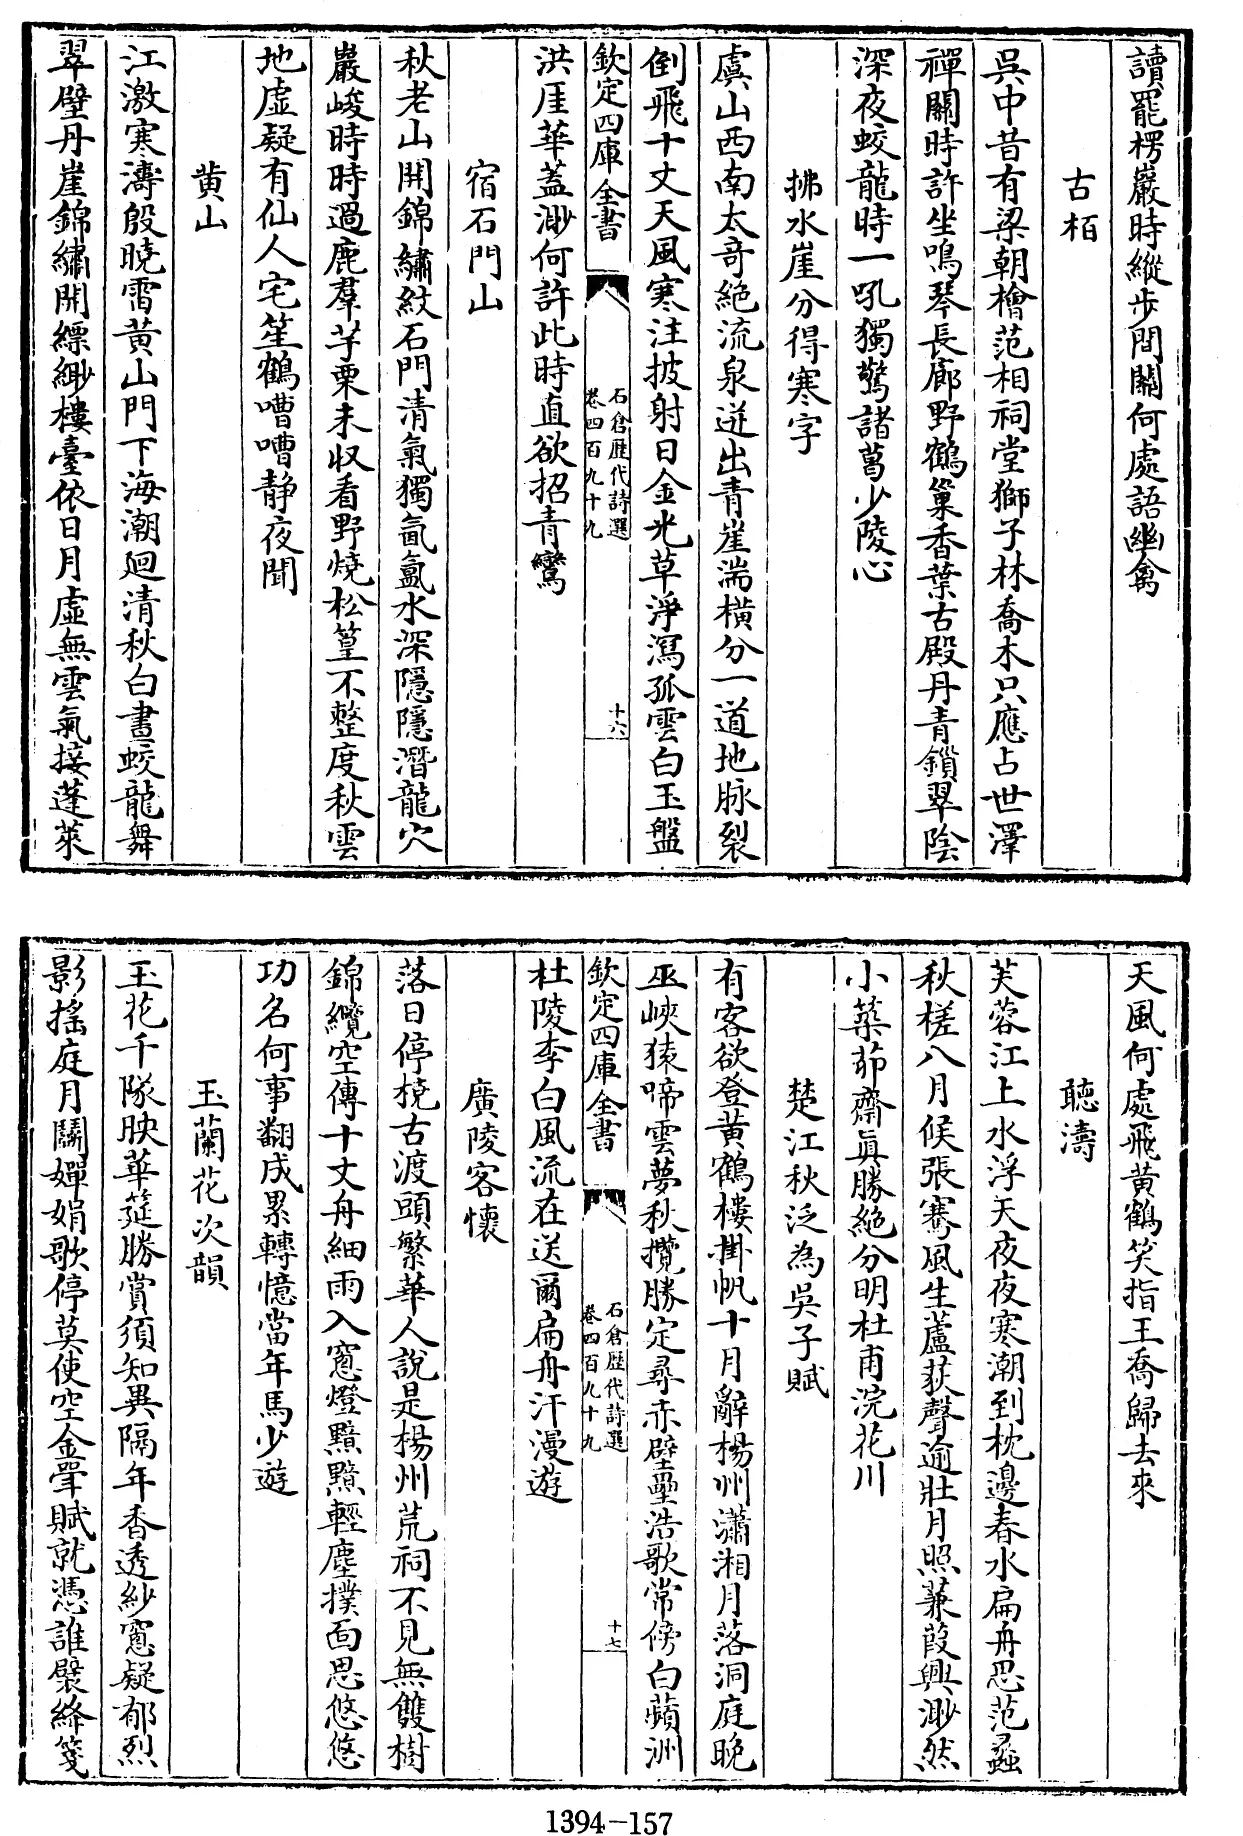 讀罷楞嚴時縱步間關何處語幽禽
古栢
吳中昔有梁朝檜范相祠堂獅子林喬木只應占世澤
禪關時許坐鳴琴長廊野鶴巢香葉古殿丹青鎖翠陰
深夜蛟龍時一吼獨驚諸葛少陵心
拂水崖分得寒字
虞山西南太奇絶流泉迸出青崖湍橫分一道地脉裂
倒飛十丈天風寒注披射日金光草淨瀉孤雲白玉盤
欽定四庫全書
石倉歷代詩選
卷四百九十九
十六
洪厓華蓋渺何許此時直欲招青鸞
宿石門山
秋老山開錦繡紋石門清氣獨氤氳水深隱隱潛龍穴
巖峻時時過鹿羣芋栗未収看野燒松篁不整度秋雲
地虛疑有仙人宅笙鶴嘈嘈静夜聞
黄山
江激寒濤殷曉雷黃山門下海潮廻清秋白晝蛟龍舞
翠壁丹崖錦繡開縹緲樓臺依日月虛無雲氣接蓬萊
天風何處飛黄鶴笑指王喬歸去來
聽濤
芙蓉江上水浮天夜夜寒潮到枕邊春水扁舟思范蠡
秋槎八月候張騫風生蘆荻聲逾壯月照蒹葭興渺然
小築茆齋眞勝絶分明杜甫浣花川
楚江秋泛為吳子賦
有客欲登黄鶴樓掛帆十月辭楊州瀟湘月落洞庭晚
巫峽猿啼雲夢秋攬勝定尋赤壁壘浩歌常傍白蘋洲
欽定四庫全書
石倉歷代詩選
卷四百九十九
十七
杜陵李白風流在送爾扁舟汗漫遊
廣陵客懷
落日停橈古渡頭繁華人說是楊州荒祠不見無雙樹
錦纜空傳十丈舟細雨入窻燈黯黯輕塵撲面思悠悠
功名何事翻成累轉憶當年馬少遊
玉蘭花次韻
玉花千隊映華筵勝賞須知異隔年香透紗窻疑郁烈
影搖庭月鬭嬋娟歌停莫使空金斝賦就憑誰襞絳箋
1394-157